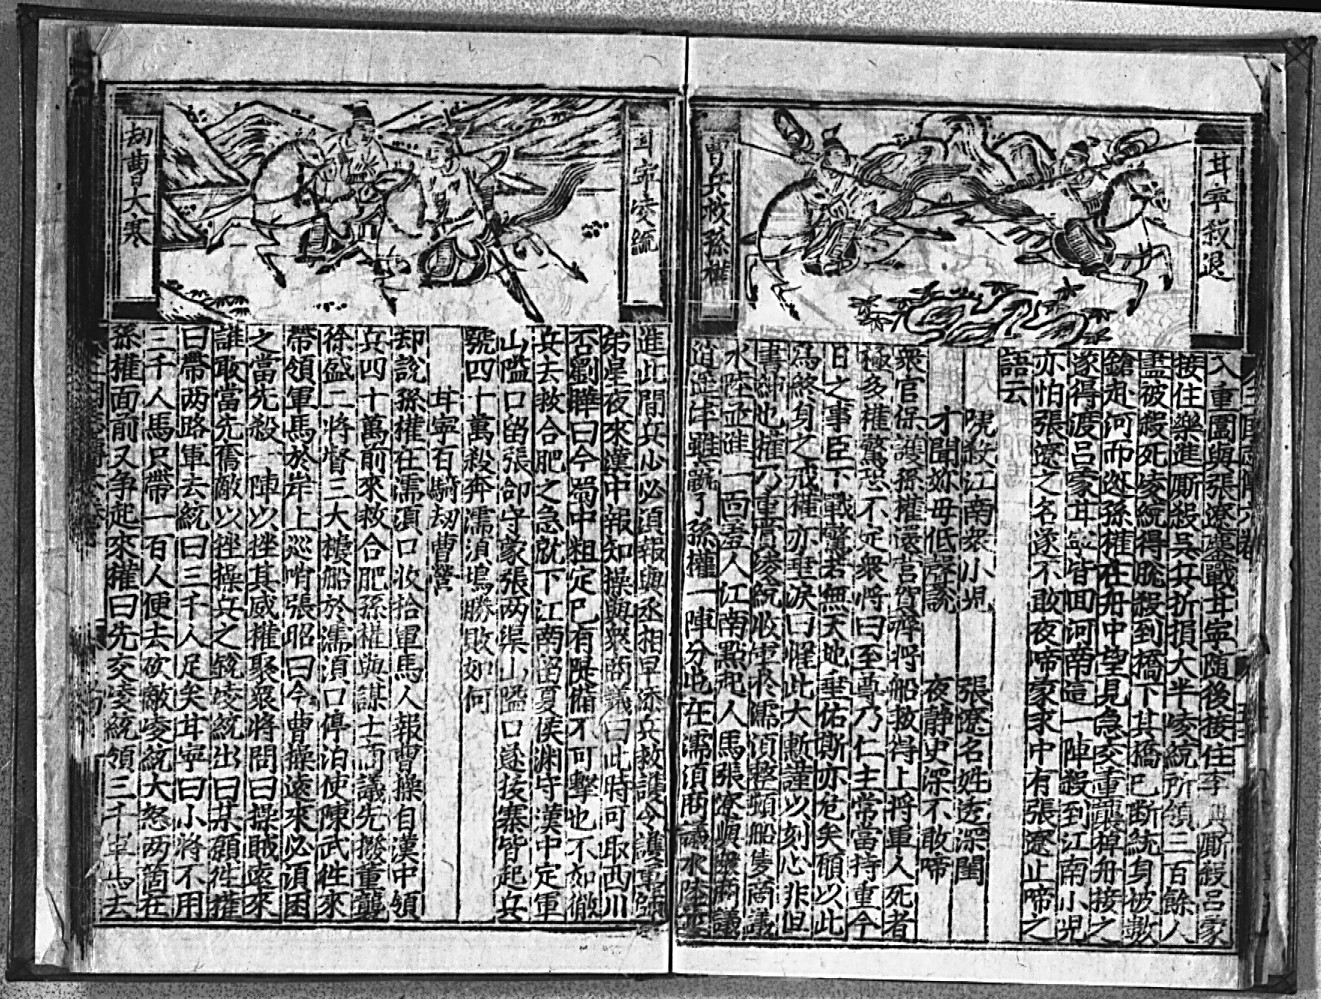 甘寧殺退
曹兵救孫權
入重圍與張遼鏖戰甘寧隨後接住李典厮殺吕蒙
接住樂進厮殺吳兵折損大半凌統所領三百餘人
盡被殺死凌統得脫殺到橋下其橋已断統身被數
鎗走河而迯孫權在舟中望見急交董襲棹舟接之
遂得渡吕蒙甘寧皆回河南這一陣殺到江南小児
亦怕張遼之名遂不敢夜啼蒙求中有張遼止啼之
語云
唬殺江南衆小児 張遼名姓透深閨
才聞妳母低聲說 夜静史深不敢啼
衆官保護孫權還宫賀齊將船救得上將軍人死者
極多權驚恐不定衆將曰至尊乃仁主常當持重今
旧之事臣下戰驚若無天地垂佑斯亦危矣願以此
為終身之戒權亦垂淚曰惺此大慙謹以刻心非但
書紳也權乃重賞凌統收軍於濡湏整頓船隻商議
水陸並進一面差人江南點起人馬張遼與衆商議
逍遥津雖說了孫權一陣分也在濡湏商議水陸並
甘寧凌統
刼曹大寨
進此間兵少必湏報與丞相早添兵救護令護軍薛
弟星夜來漢中報知操與衆商議曰此時可取西川
否劉曄曰今蜀中粗定已有提備不可擊也不如徹
兵去救合肥之急就下江南留夏侯淵守漢中定軍
山隘口留張郃守蒙張两渠山隘口遂拔寨皆起兵
號四十萬殺奔濡湏塢勝敗如何
甘寧百騎刼曹營
却說孫權在濡湏口收拾軍馬人報曹操自漢中領
兵四十萬前來救合肥孫權與謀士商議先撥董襲
徐盛二將督三大樓船於濡湏口停泊使陳武往來
帶領軍馬於岸上巡哨張昭曰今曹操遠來必湏困
之當先殺一陣以挫其威權聚衆將問曰操賊遠來
誰敢當先喬敵以挫操兵之銳凌統出曰某願徃權
曰帶两路軍去統曰三千人足矣甘寧曰小將不用
三千人馬只帶一百人便去破敵凌統大怒两箇在
孫權面前又争起來權曰先交凌統領三千軍馬去